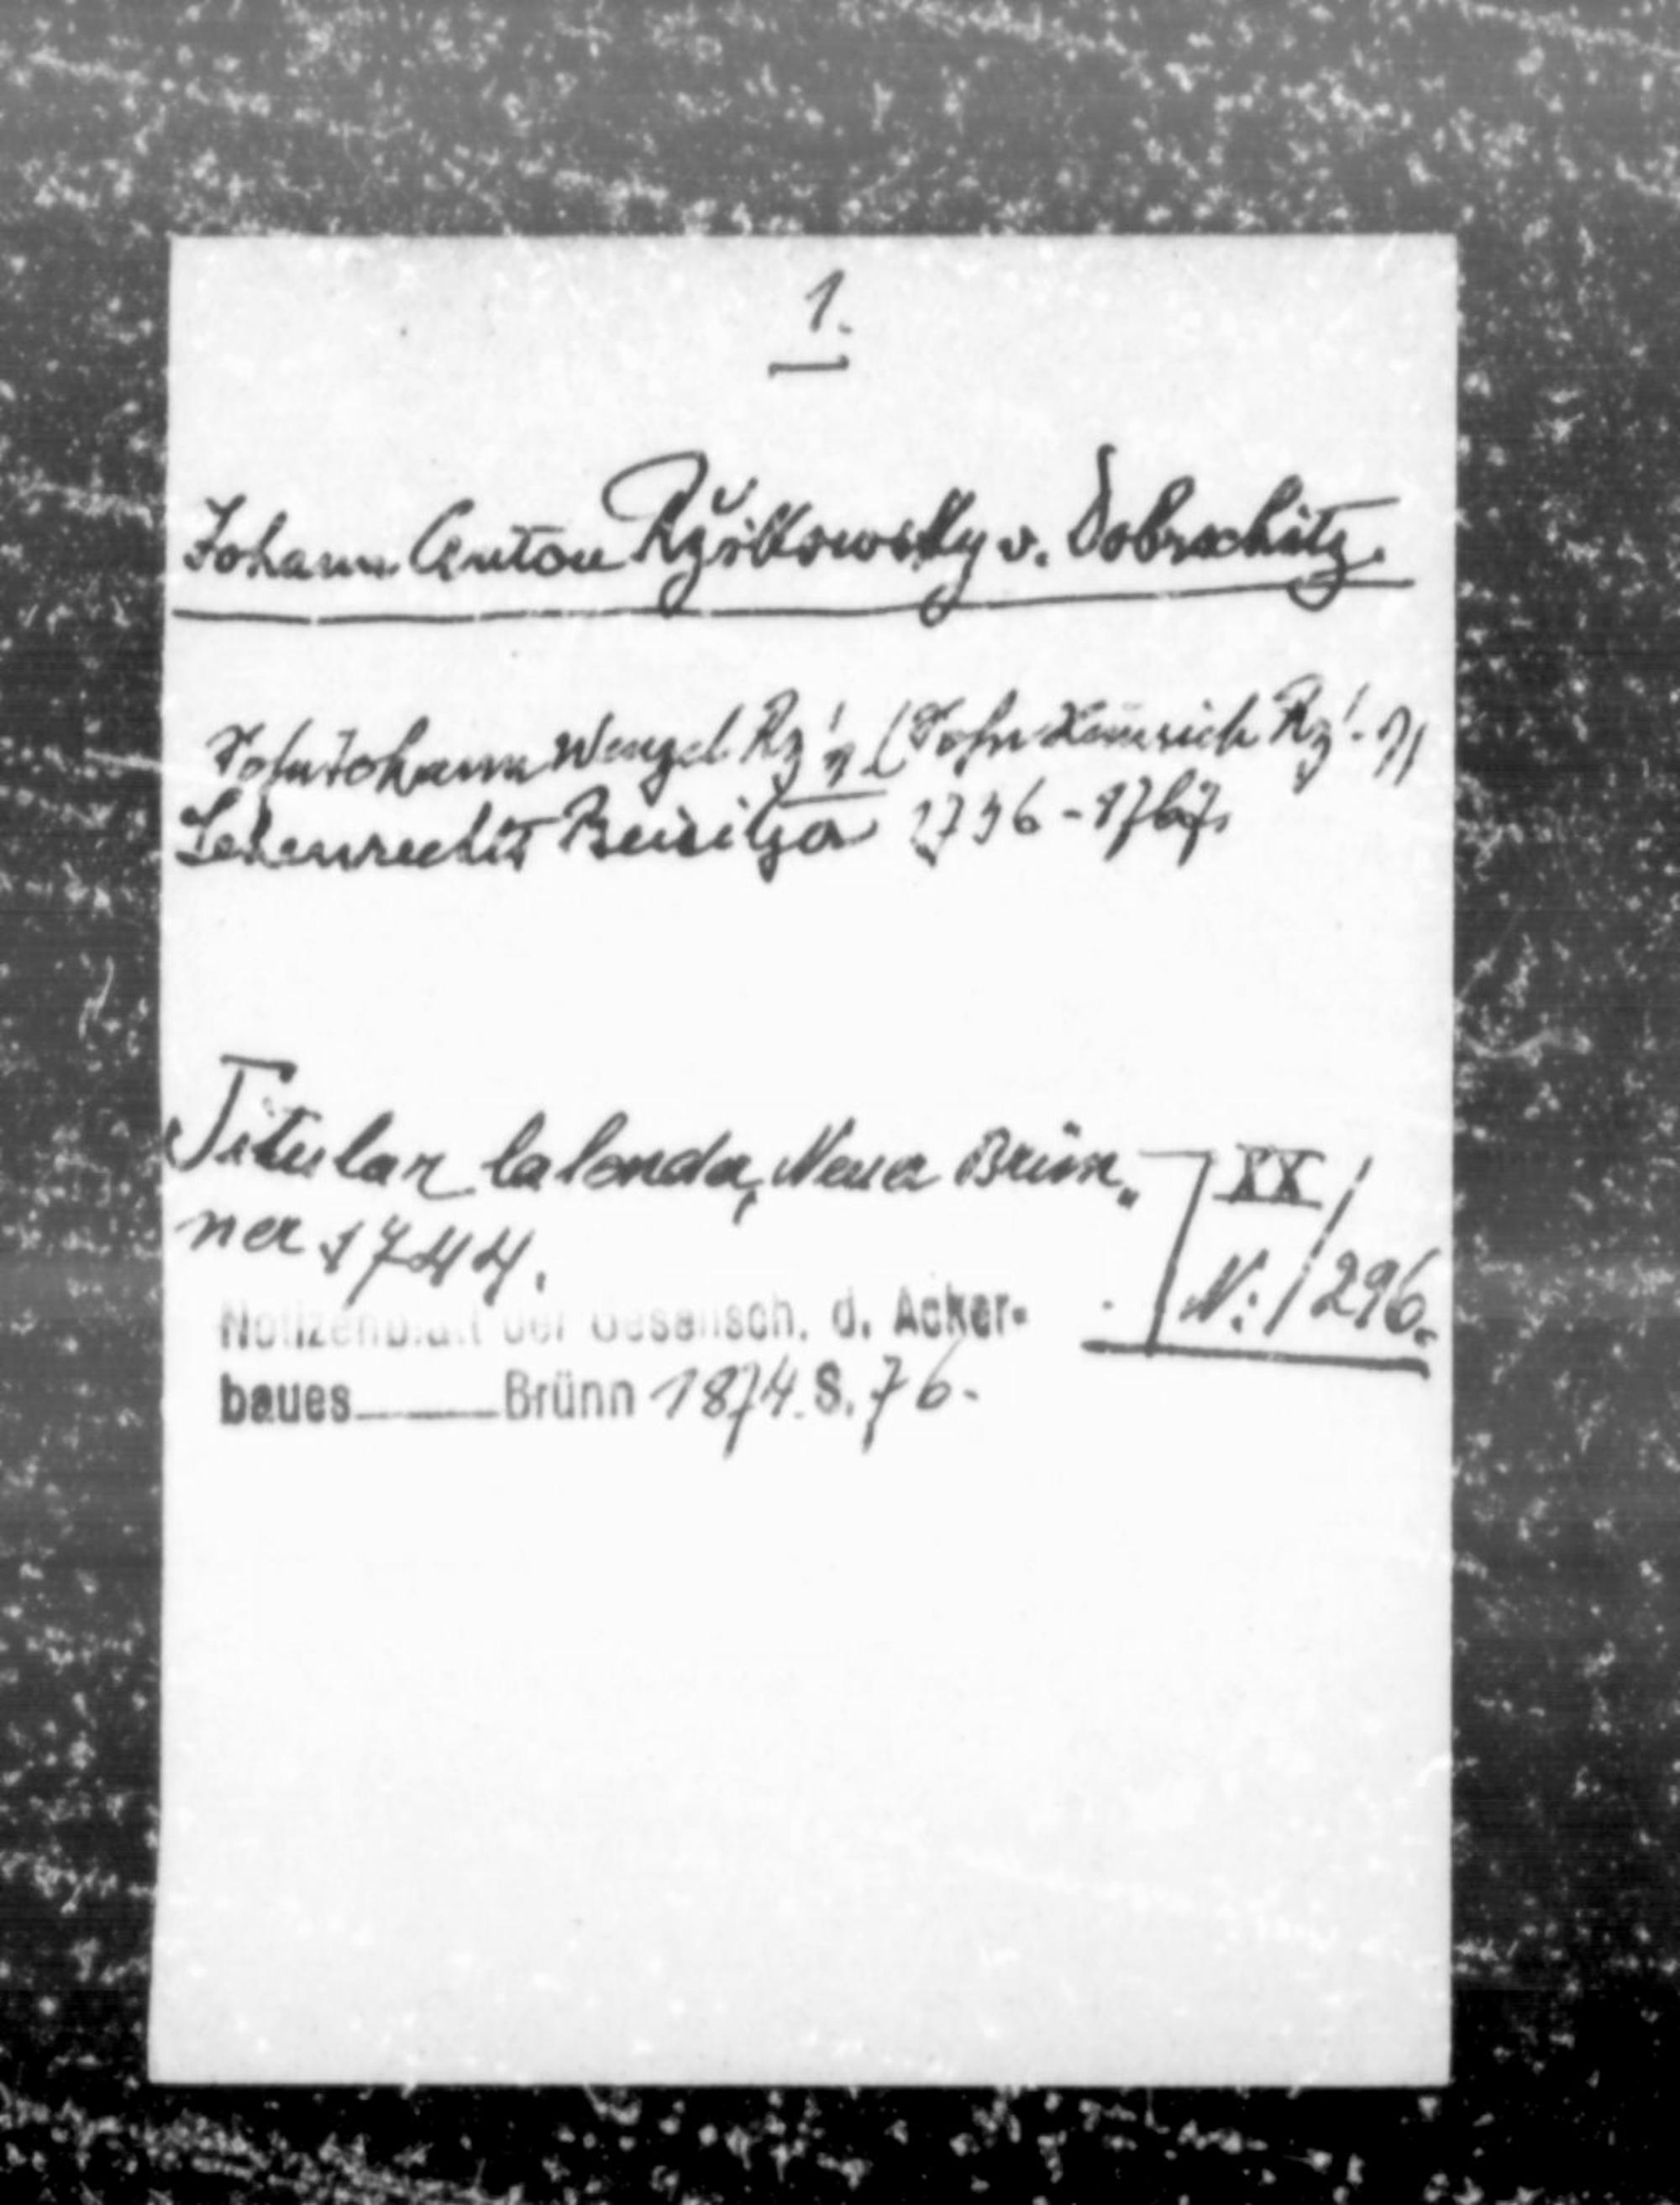 1.
Johann Anton Ržikowsky v. Dobrschitz.
Sohn Johann Wenzel Rz! (Sohn Heinrich Rz!
Lehenrechts Beisitzer 1736-1767
Titular Calender, Neuer Brün„
ner 1744.
XX/
N: / 296.
Notizenblatt der Gesellsch. d. Acker-
baues Brünn 1874. S. 76.